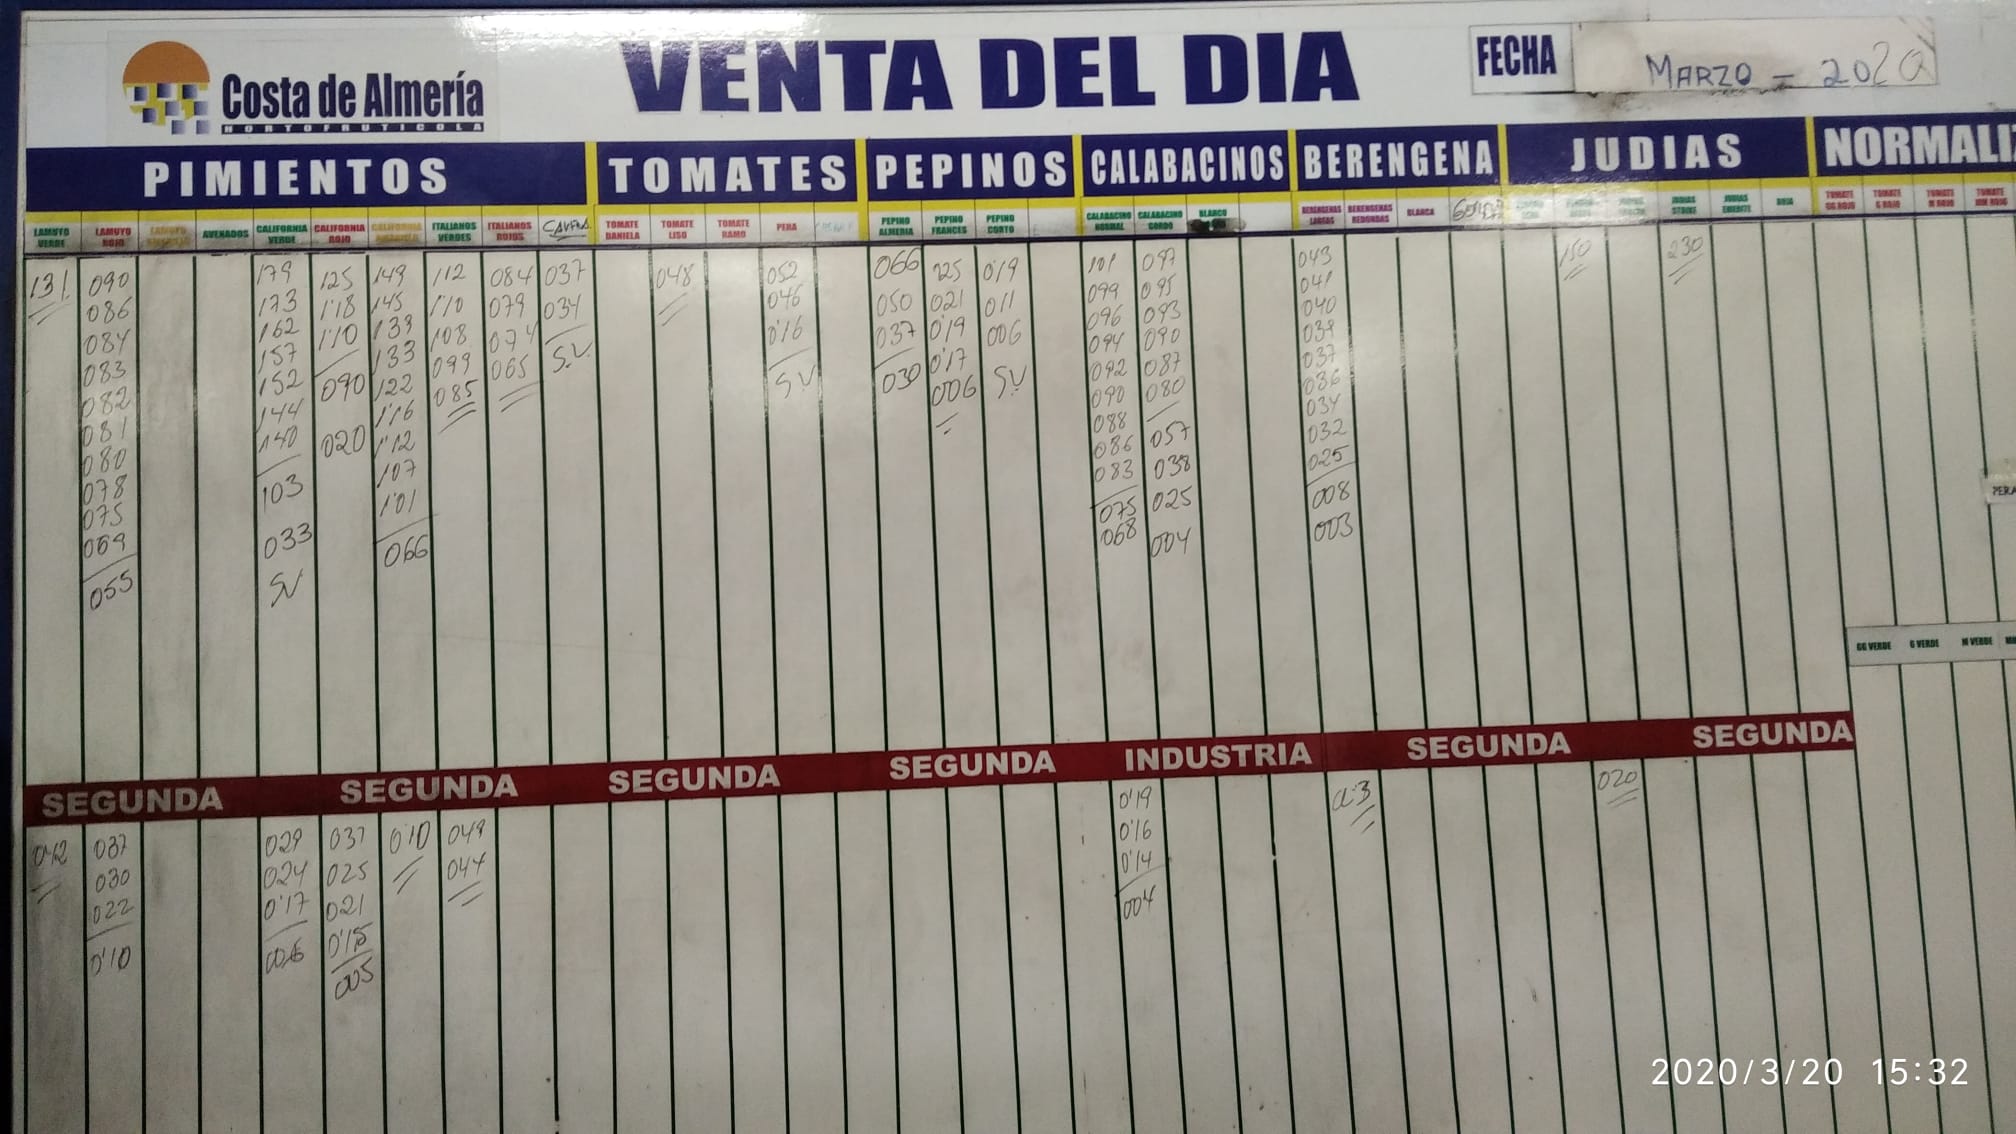 Costa de Almería
HORTOFRUTICOLA
VENTA DEL DIA
FECHA
MARZO - 2020
PIMIENTOS TOMATES PEPINOS CALABACINOS BERENGENA JUDIAS
LAMUYO VERDE
131
LAMUYO ROJO
090
086
084
083
082
081
080
078
075
069
055
AVENADOS
CALIFORNIA VERDE
179
173
162
157
152
144
140
103
033
SV
CALIFORNIA ROJO
125
1'18
1'10
090
020
149
145
139
133
122
1'16
1'12
107
1'01
066
ITALIANOS VERDES
112
1'10
108
099
085
ITALIANOS ROJOS
084
079
074
065
037
034
S.V.
TOMATE DANIELA
TOMATE LISO
048
TOMATE RAMO
PERA
052
046
0'16
SV
PEPINO ALMERIA
066
050
037
030
PEPINO FRANCES
021
0'19
0'17
006
PEPINO CORTO
0'19
011
006
SV
CALABACINO NORMAL
101
099
096
094
092
090
088
086
083
075
068
CALABACINO GORDO
097
095
093
090
087
080
057
038
025
004
BLANCO
BERENGENAS LARGAS
043
041
040
039
037
036
034
032
025
008
003
BERENGENAS REDONDAS
BLANCA
150
JUDIAS STRIKE
230
JUDIAS EMERITE
ROJA
TOMATE GG ROJO
TOMATE G ROJO
TOMATE M ROJO
GG VERDE G VERDE M VERDE
SEGUNDA SEGUNDA SEGUNDA SEGUNDA INDUSTRIA SEGUNDA SEGUNDA
042
037
030
022
0'10
029
024
0'17
006
037
025
021
0'15
005
0'10
049
044
0'19
0'16
0'14
004
020
2020/3/20 15:32